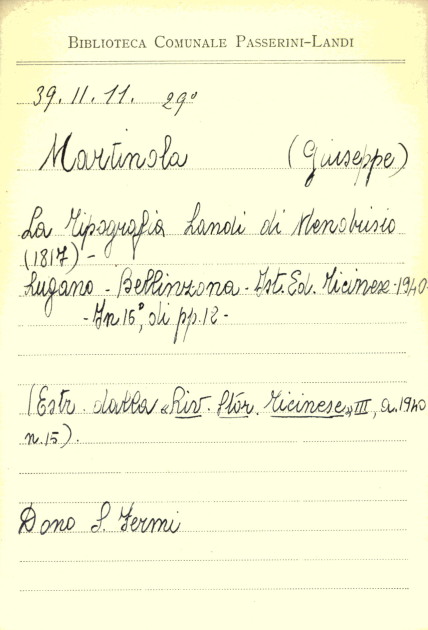 BIBLIOTECA COMUNALE PASSERINI-LANDI
39. II. 11. 29°
Martinola (Giuseppe)
La Tipografia Landi di Mendrisio
(1817) -
Lugano - Bellinzona - Ist. Ed. Ticinese - 1940 -
- In 16°, di pp. 12 -
(Estr. dalla «Riv. Stor. Ticinese» III, a. 1940
n. 15).
Dono S. Fermi